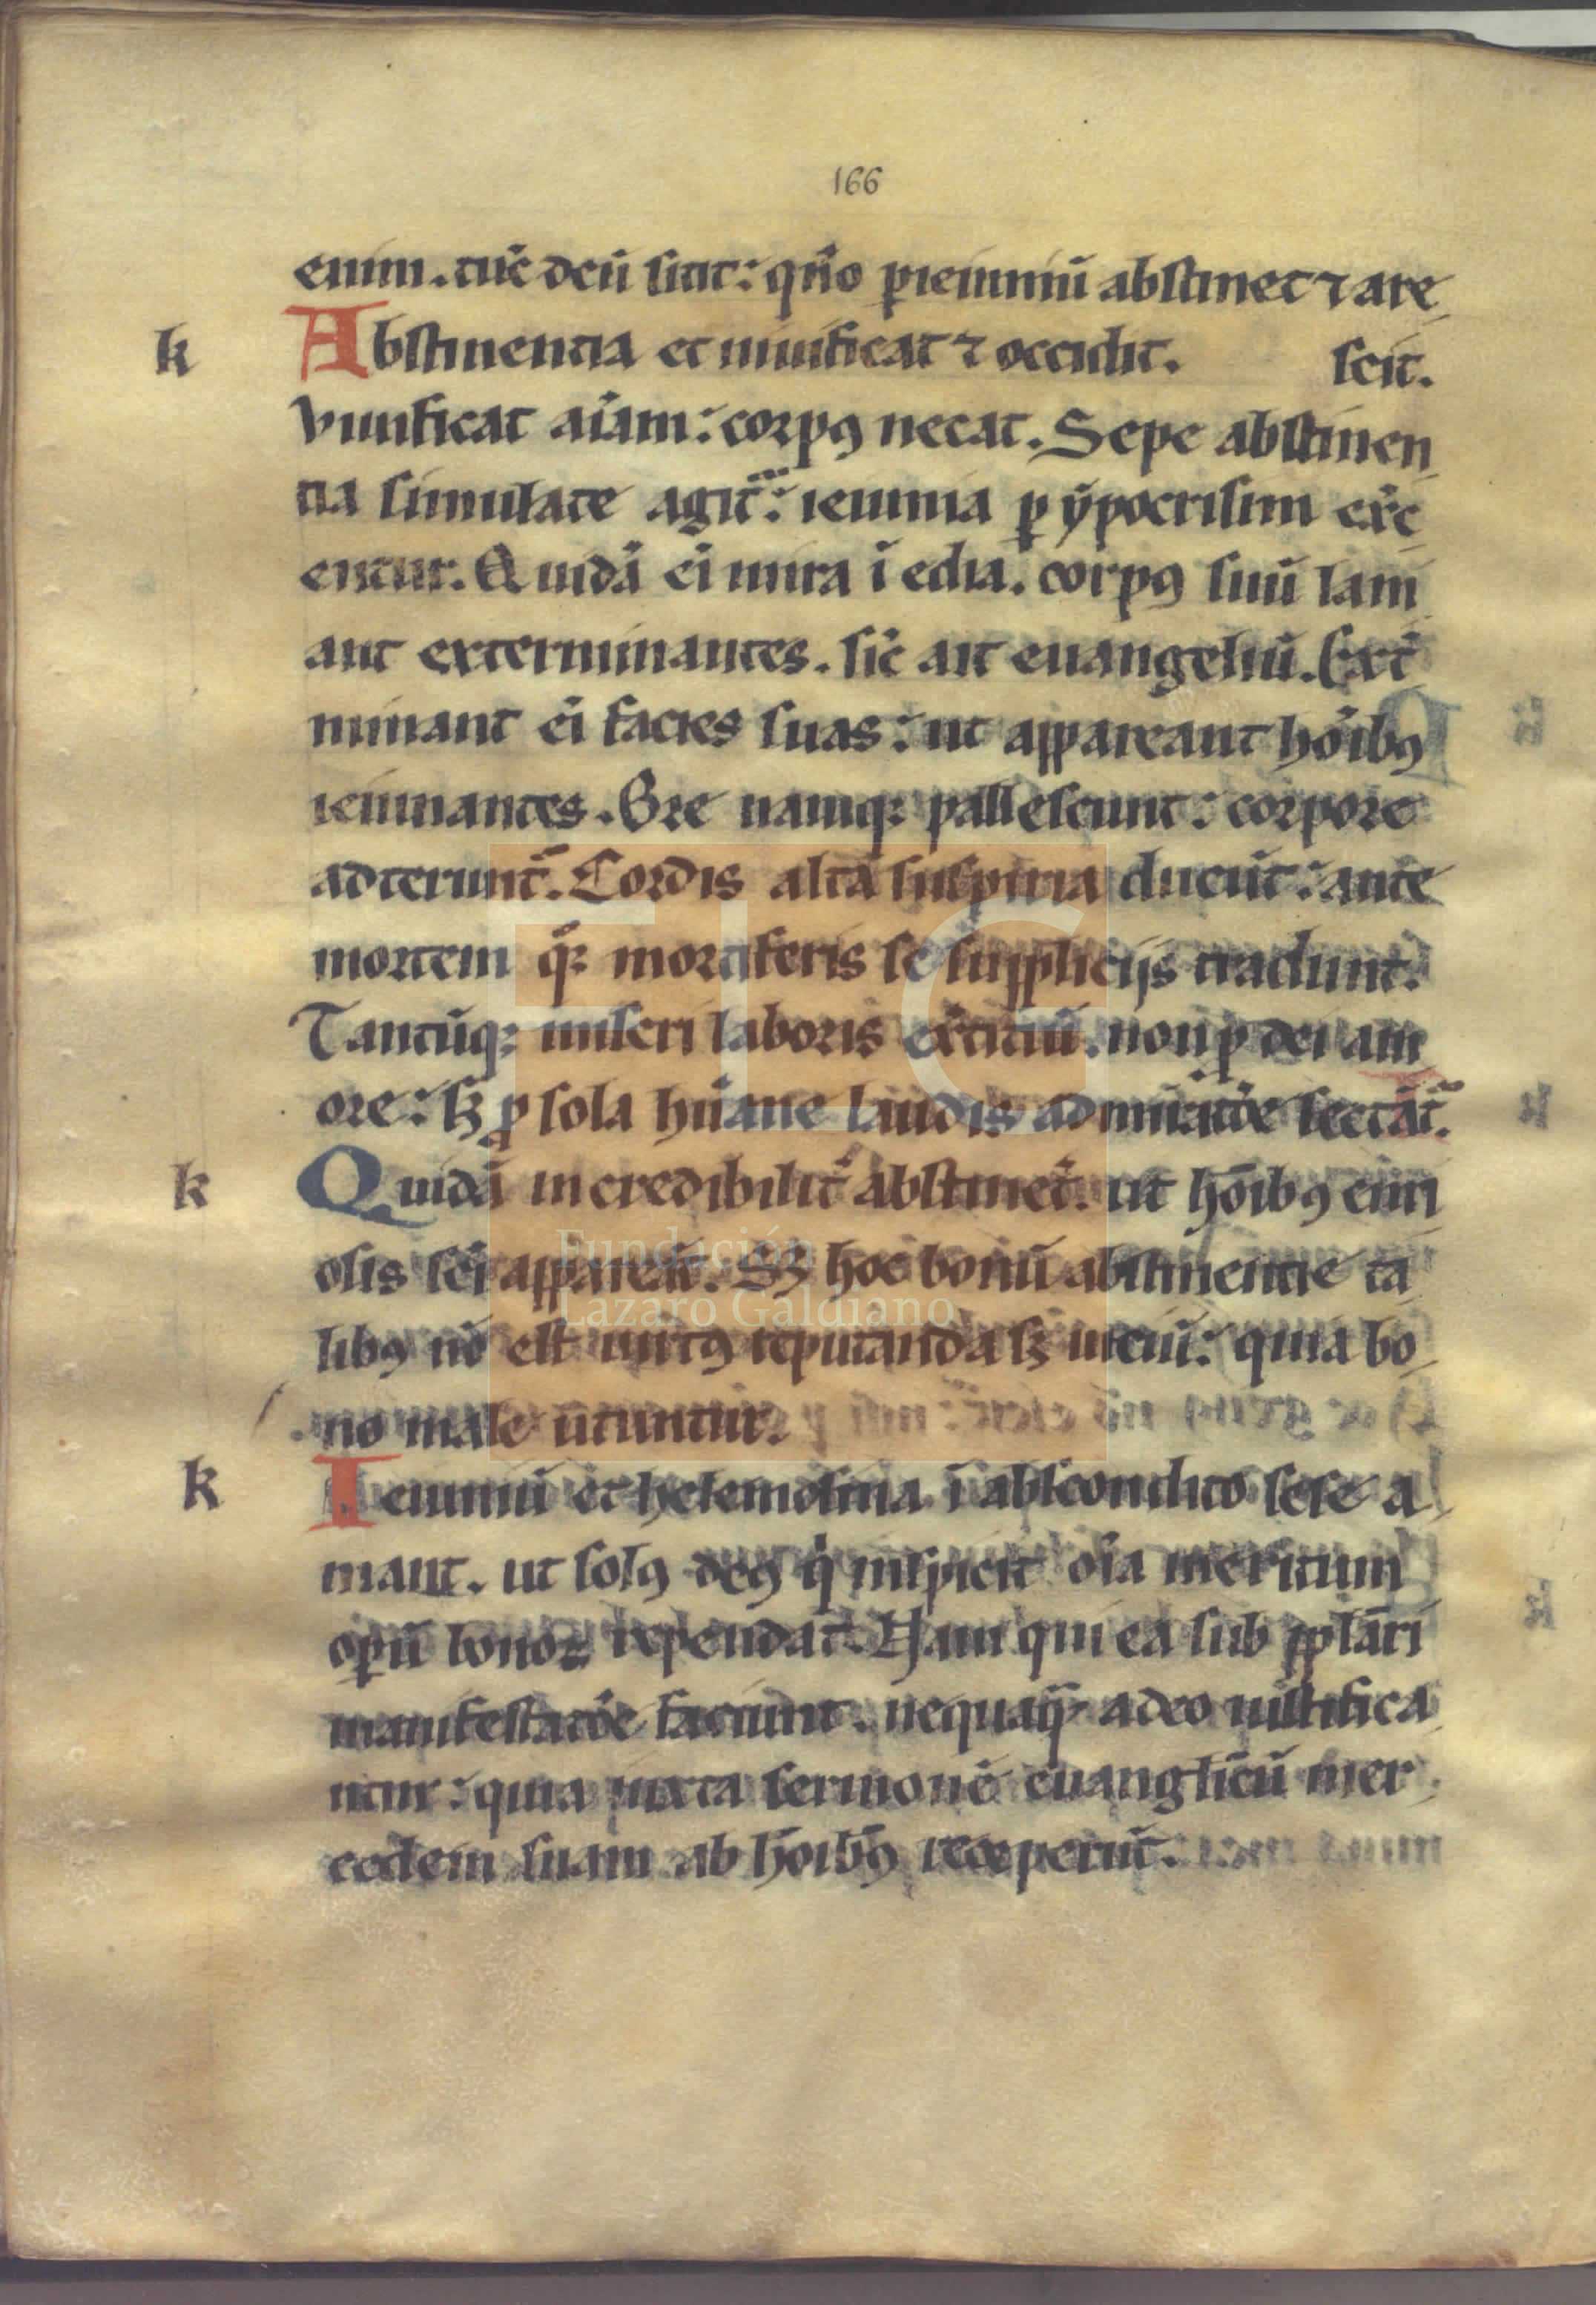 166
enim. tūc deū sitit: qn̄o ꝑ ieiuniū abstinet ⁊ are
k Abstinentia et uiuificat ⁊ occidit. scit.
Viuificat aīam: corpꝰ necat. Sepe abstinen
tia simulate agit᷑: ieiunia ꝑ ypocrisim ex̄c
entur. Quidā ei᷑ mira ī edia. corpꝰ suū lani
ant exterminantes. sic̄ ait euangeliū. Ext᷑
minant ei᷑ facies suas: ut appareant hōībꝰ
ieiunantes. Ore namqꝫ pallescunt: corpore
adterunt᷑. Cordis alta suspiria ducūt: ante
mortem qͦꝫ mortiferis se supplicijs tradunt.
Tantūqꝫ miseri laboris ex̄citiū. non ꝓ dei am
ore: sꝫ ꝓ sola hūane laudis admirat̄oe sectāt᷑.
k Quidā incredibilit᷑ abstinet᷑. ut hōībꝰ curi
osis sc̄i appareāt. Sꝫ hoc bonū abstinentie ta
libꝰ nō est uirtꝰ reputanda sꝫ uiciū: quia bo
no male utuntur.
k Ieiuniū et helemosina ī abscondito sese a
mant. ut solꝰ deꝰ qͥ inspicit oīa meritum
oꝑū bonoꝝ rependat. Nam qui ea sub pplāri
manifestatōe faciunt. nequaqͣ᷑ a deo iustifica
ntur: quia iuxta sermonē euanglicū mer
cedem suam ab hōībꝰ receperūt.
Fundación
Lázaro Galdiano
FLG